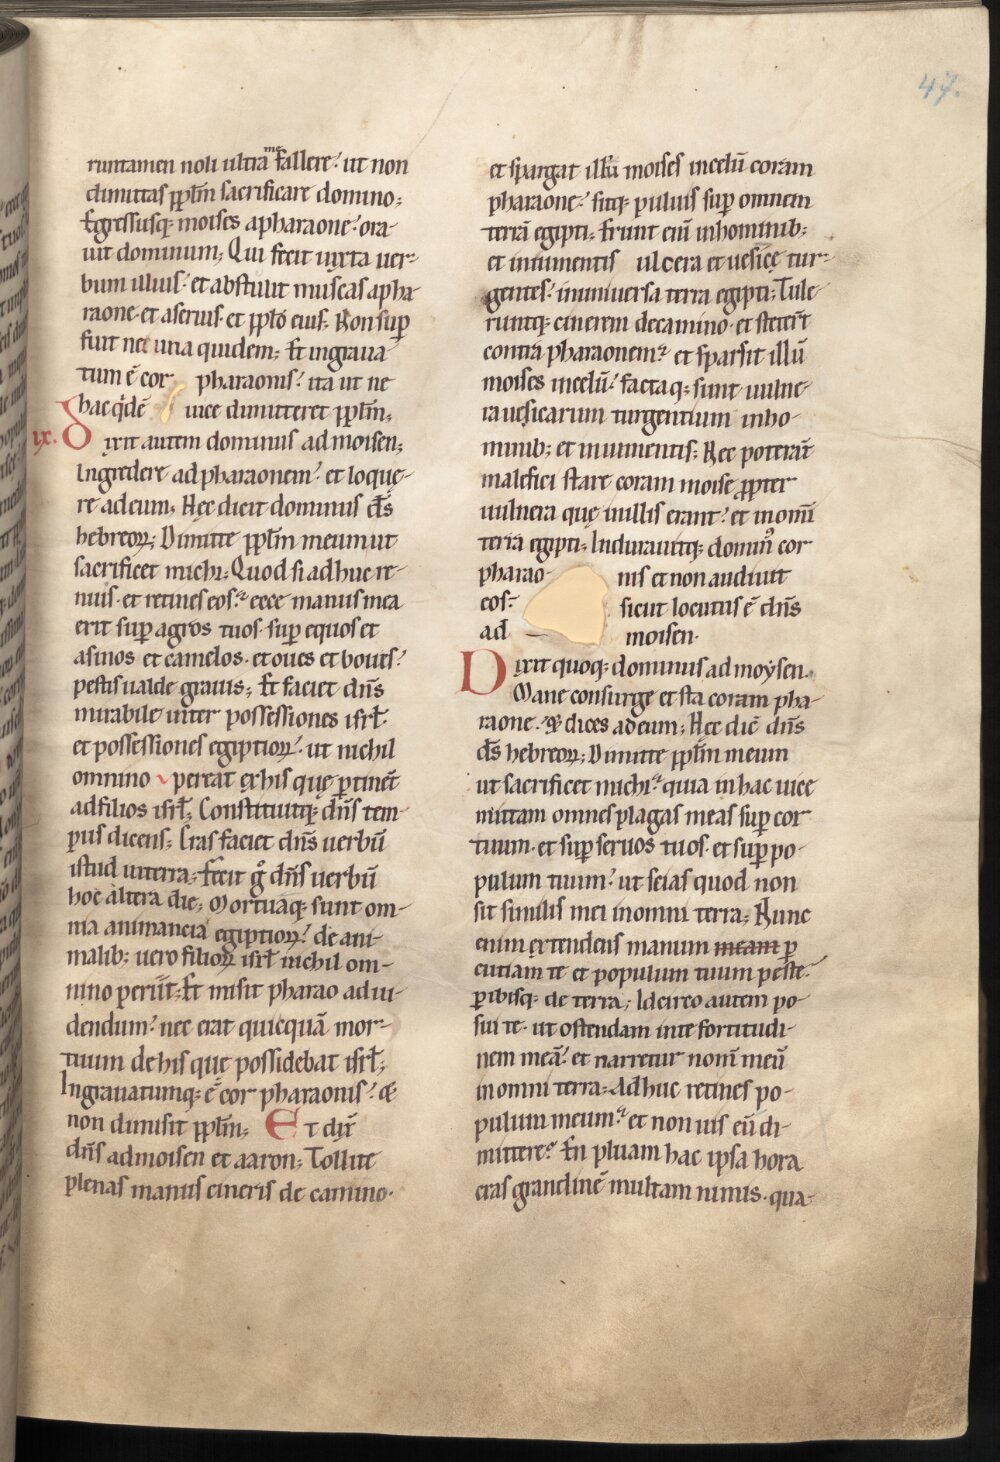 47.
runtamen noli ultra me fallere? ut non
dimittas ppl̄m sacrificare domino;
Egressusq; moises a pharaone? ora-
uit dominum; Qui fecit iuxta uer-
bum illius? et abstulit muscas apha
raone· et a seruis· et ppl̄o eius; Non sup̄
fuit nec una quidem; Et ingraua
tum ē cor pharaonis? ita ut ne
hac qi̇dē uice dimitteret ppl̄m;
ix. Dixit autem dominus ad moisen;
Ingredere ad pharaonem? et loque-
re ad eum; Hęc dicit dominus d̄s
hebreoꝝ; Dimitte ppl̄m meum ut
sacrificet michi; Quod si adhuc re-
nuis· et retines eos? ecce manus mea
erit sup̄ agros tuos· sup̄ equos et
asinos et camelos· et oues et boues?
pestis ualde grauis; Et faciet dn̄s
mirabile inter possessiones isrł·
et possessiones egiptioꝝ? ut nichil
omnino pereat ex his quę ꝑtinēt
ad filios isrł; Constituitq; dn̄s tem-
pus dicens; Cras faciet dn̄s uerbū
istud in terra; Fecit g̊ dn̄s uerbū
hoc altera die; Mortuaq; sunt om-
nia animancia egiptioꝝ? de ani-
malib; uero filioꝝ isrł nichil om-
nino perūt; Et misit pharao ad ui-
dendum? nec erat quicquā mor-
tuum de his que possidebat isrł;
Ingrauatumq; ē cor pharaonis? &
non dimisit ppl̄m; Et dix̄
dn̄s ad moisen et aaron; Tollite
plenas manus cineris de camino·
et spargat illū moises in celū coram
pharaone? sitq; puluis sup̄ omnem
terrā egipti; Erunt eni̅ in hominib;
et in iumentis ulcera et uesicę tur-
gentes? in uniuersa terra egipti; Tule-
runtq; cinerem de camino· et stetert̄
contra pharaonem? et sparsit illū
moises in celū? factaq; sunt uulne-
ra uesicarum turgentium in ho-
minib; et in iumentis; Nec poterāt
malefici stare coram moise ꝓpter
uulnera quę in illis erant? et in omi̅
terra egipti; Indurauitq; domin᷒ cor
pharao- nis et non audiuit
eos? sicut locutus ē dn̄s
ad moisen·
Dixit quoq; dominus ad moysen.
Mane consurge et sta coram pha-
raone? & dices ad eum; Hęc dic̄ dn̄s
d̄s hebreoꝝ; Dimitte ppl̄m meum
ut sacrificet michi? quia in hac uice
mittam omnes plagas meas sup̄ cor
tuum· et sup̄ seruos tuos· et sup̄ po-
pulum tuum? ut scias quod non
sit similis mei in omni terra; Nunc
enim extendens manum meam ꝑ
cutiam te et populum tuum peste·
ꝑibisq; de terra; Idcirco autem po-
sui te· ut ostendam in te fortitudi-
nem meā? et narretur nom̄ meū
in omni terra; Adhuc retines po-
pulum meum? et non uis eū di-
mittere? En pluam hac ipsa hora
cras grandinē multam nimis· qua-